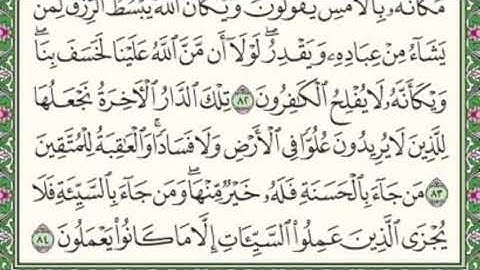 مَكَانَهُۥ بِٱلْأَمْسِ يَقُولُونَ وَيْكَأَنَّ ٱللَّهَ يَبْسُطُ ٱلرِّزْقَ لِمَن
يَشَآءُ مِنْ عِبَادِهِۦ وَيَقْدِرُۖ لَوْلَآ أَن مَّنَّ ٱللَّهُ عَلَيْنَا لَخَسَفَ بِنَاۖ
وَيْكَأَنَّهُۥ لَا يُفْلِحُ ٱلْكَٰفِرُونَ ٨٢ تِلْكَ ٱلدَّارُ ٱلْأَخِرَةُ نَجْعَلُهَا
لِلَّذِينَ لَا يُرِيدُونَ عُلُوًّا فِى ٱلْأَرْضِ وَلَا فَسَادًاۚ وَٱلْعَٰقِبَةُ لِلْمُتَّقِينَ
٨٣ مَن جَآءَ بِٱلْحَسَنَةِ فَلَهُۥ خَيْرٌ مِّنْهَاۖ وَمَن جَآءَ بِٱلسَّيِّئَةِ فَلَا
يُجْزَى ٱلَّذِينَ عَمِلُوا۟ ٱلسَّيِّـَٔاتِ إِلَّا مَا كَانُوا۟ يَعْمَلُونَ ٨٤